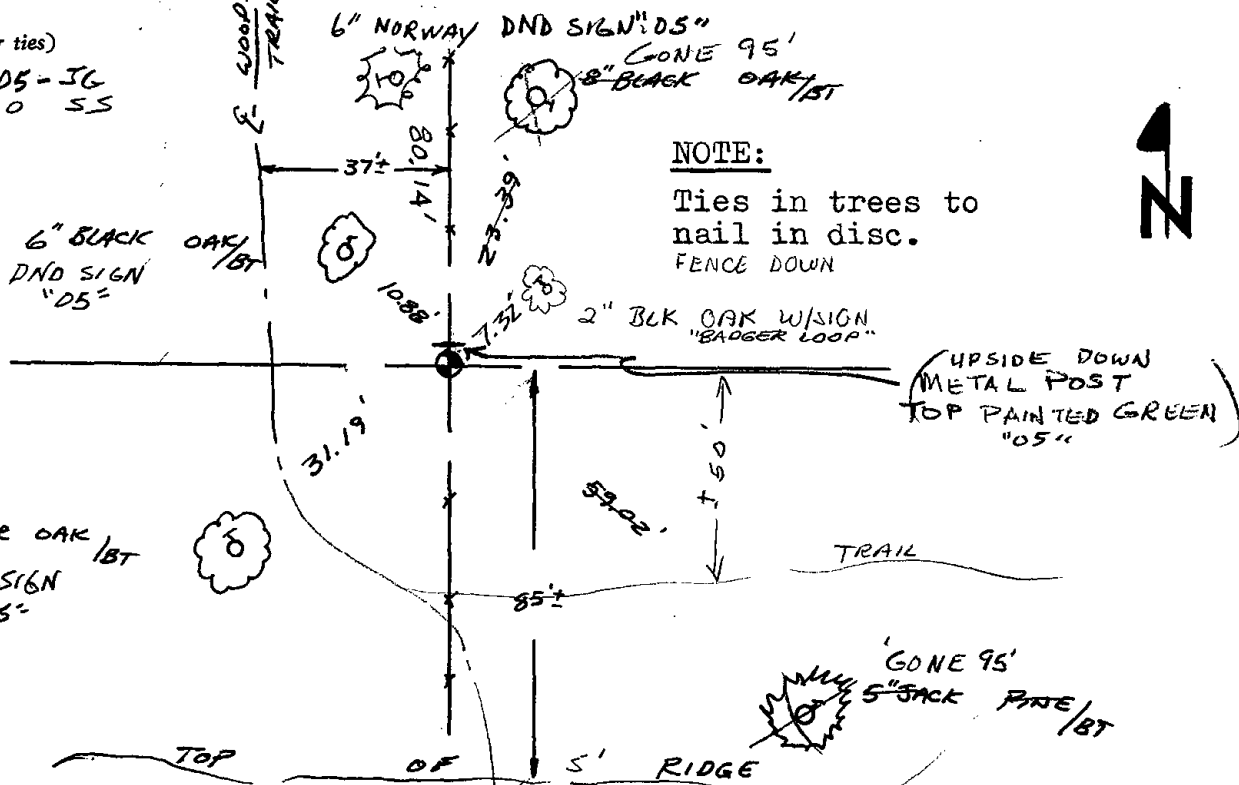 ties)
05-JG
0 SS
WOODS
TRAIL
6" NORWAY DND SIGN "05"
GONE 95'
8" BLACK OAK/BT
37'±
80.14'
23.39'
NOTE:
Ties in trees to
nail in disc.
FENCE DOWN
N
6" BLACK OAK/BT
DND SIGN
"05"
10.88'
7.32'
2" BLK OAK W/SIGN
"BADGER LOOP"
(UPSIDE DOWN
METAL POST
TOP PAINTED GREEN)
"05"
31.19'
59.02'
± 50'
TRAIL
OAK/BT
SIGN
85'±
'GONE 95'
5" JACK PINE/BT
TOP OF 5' RIDGE